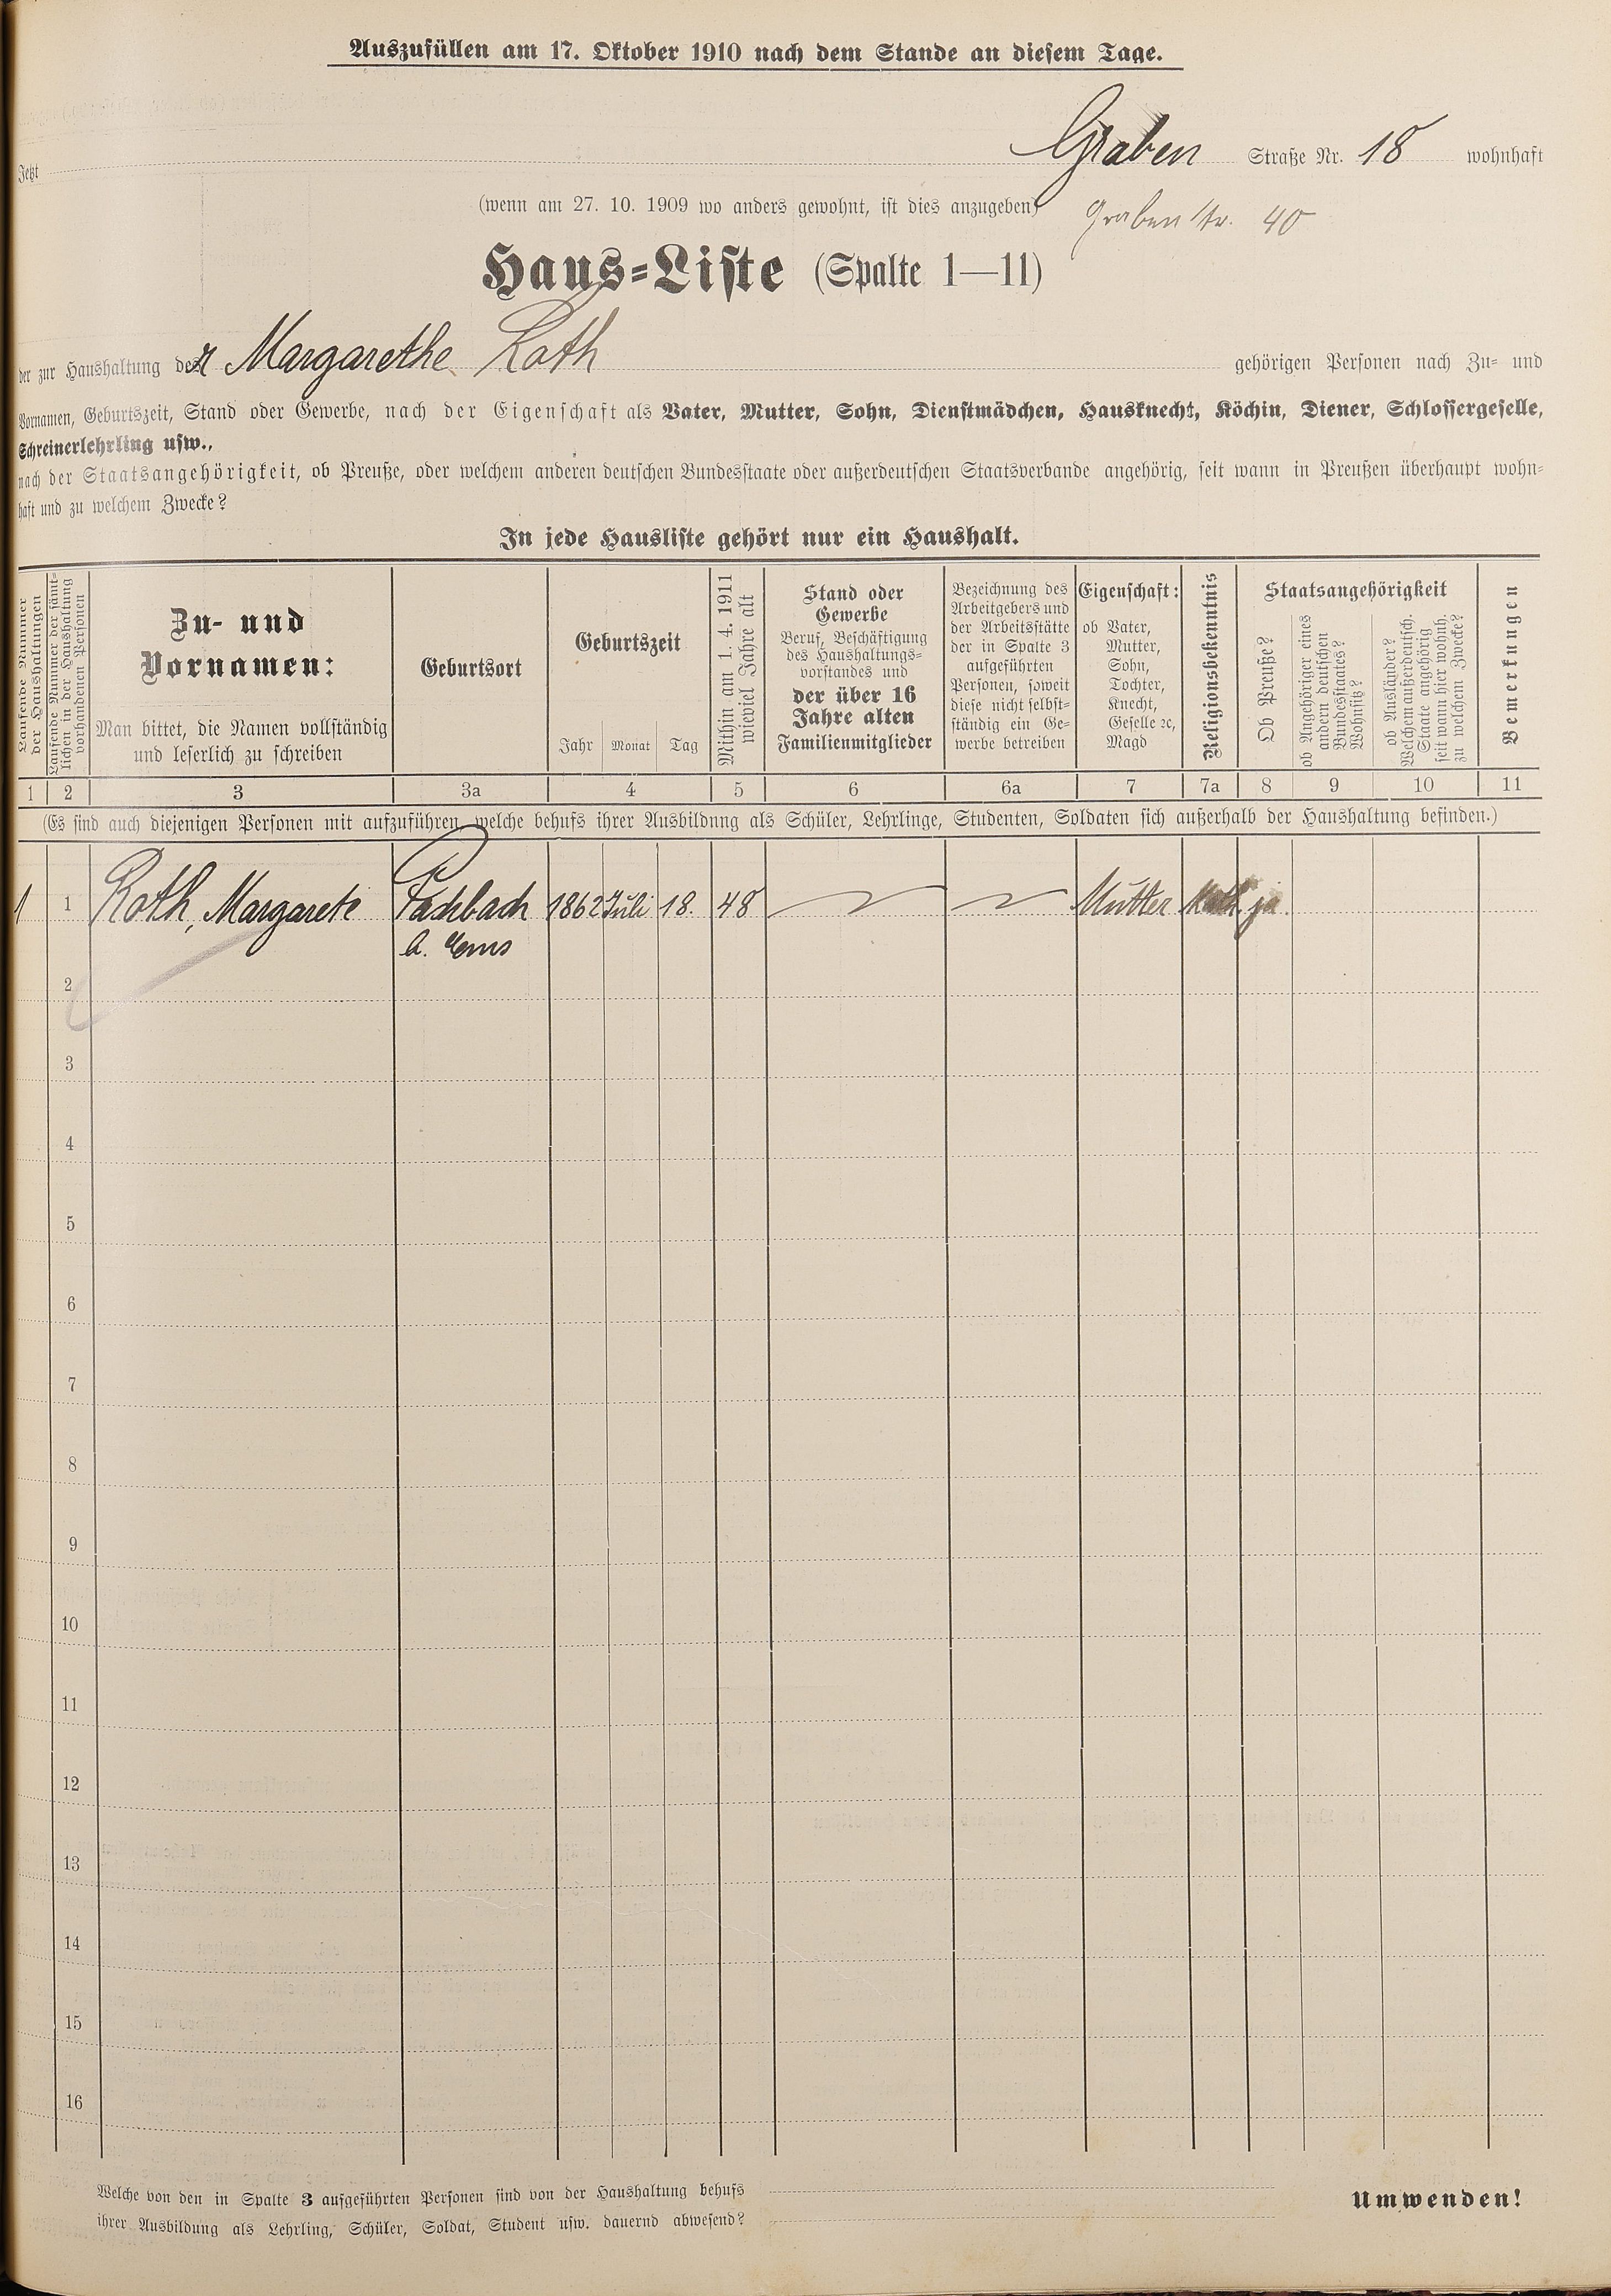 Auszufüllen am 17. Oktober 1910 nach dem Stande an diesem Tage.
Jetzt Graben Straße Nr. 18 wohnhaft
(wenn am 27. 10. 1909 wo anders gewohnt, ist dies anzugeben) Grabenstr. 40
Haus-Liste (Spalte 1—11)
der zur Haushaltung der Margarethe Roth gehörigen Personen nach Zu- und
Vornamen, Geburtszeit, Stand oder Gewerbe, nach der Eigenschaft als Vater, Mutter, Sohn, Dienstmädchen, Hausknecht, Köchin, Diener, Schlossergeselle,
Schreinerlehrling usw.,
nach der Staatsangehörigkeit, ob Preuße, oder welchem anderen deutschen Bundesstaate oder außerdeutschen Staatsverbande angehörig, seit wann in Preußen überhaupt wohn-
haft und zu welchem Zwecke?
In jede Hausliste gehört nur ein Haushalt.
Laufende Nummer
der Haushaltungen
Laufende Nummer der sämt-
lichen in der Haushaltung
vorhandenen Personen
Zu- und
Vornamen:
Man bittet, die Namen vollständig
und leserlich zu schreiben
Geburtsort
Geburtszeit
Jahr Monat Tag
Mithin am 1. 4. 1911
wieviel Jahre alt
Stand oder
Gewerbe
Beruf, Beschäftigung
des Haushaltungs-
vorstandes und
der über 16
Jahre alten
Familienmitglieder
Bezeichnung des
Arbeitgebers und
der Arbeitsstätte
der in Spalte 3
aufgeführten
Personen, soweit
diese nicht selbst-
ständig ein Ge-
werbe betreiben
Eigenschaft:
ob Vater,
Mutter,
Sohn,
Tochter,
Knecht,
Geselle ꝛc,
Magd
Religionsbekenntnis
Staatsangehörigkeit
Ob Preuße?
ob Angehöriger eines
andern deutschen
Bundesstaates?
Wohnsitz?
ob Ausländer?
Welchem außerdeutsch.
Staate angehörig
seit wann hier wohnh.
zu welchem Zwecke?
Bemerkungen
1 2 3 3a 4 5 6 6a 7 7a 8 9 10 11
(Es sind auch diejenigen Personen mit aufzuführen, welche behufs ihrer Ausbildung als Schüler, Lehrlinge, Studenten, Soldaten sich außerhalb der Haushaltung befinden.)
1 1 Roth, Margarete Fachbach 1862 Juli 18. 48 Mutter Kath. ja.
b. Ems
2
3
4
5
6
7
8
9
10
11
12
13
14
15
16
Welche von den in Spalte 3 aufgeführten Personen sind von der Haushaltung behufs
ihrer Ausbildung als Lehrling, Schüler, Soldat, Student usw. dauernd abwesend?
Umwenden!